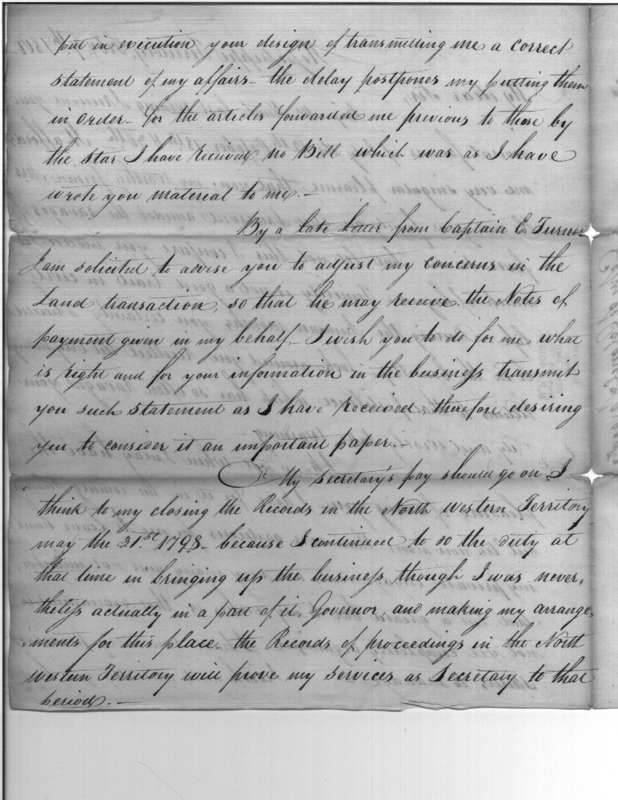 put in execution your design of transmitting me a correct
statement of my affairs – the delay postpones my putting them
in order – for the articles forwarded me previous to those by
the Star I have received no Bill which was as I have
wrote you material to me. –
By a late letter from Captain E. Turner
I am solicited to advise you to adjust my concerns in the
Land transaction, so that he may receive the Notes of
payment given in my behalf – I wish you to do for me what
is right and for your information in the business transmit
you such statement as I have received, therefore desiring
you to consider it an important paper. –
My Secretary's pay should go on I
think to my closing the Records in the North Western Territory
may the 31.st 1798 – because I continued to do the duty at
that time in bringing up the business, though I was never,
theless actually in a part of it, Governor, and making my arrange,
ments for this place. the Records of proceedings in the North
Western Territory will prove my services as Secretary to that
period. –